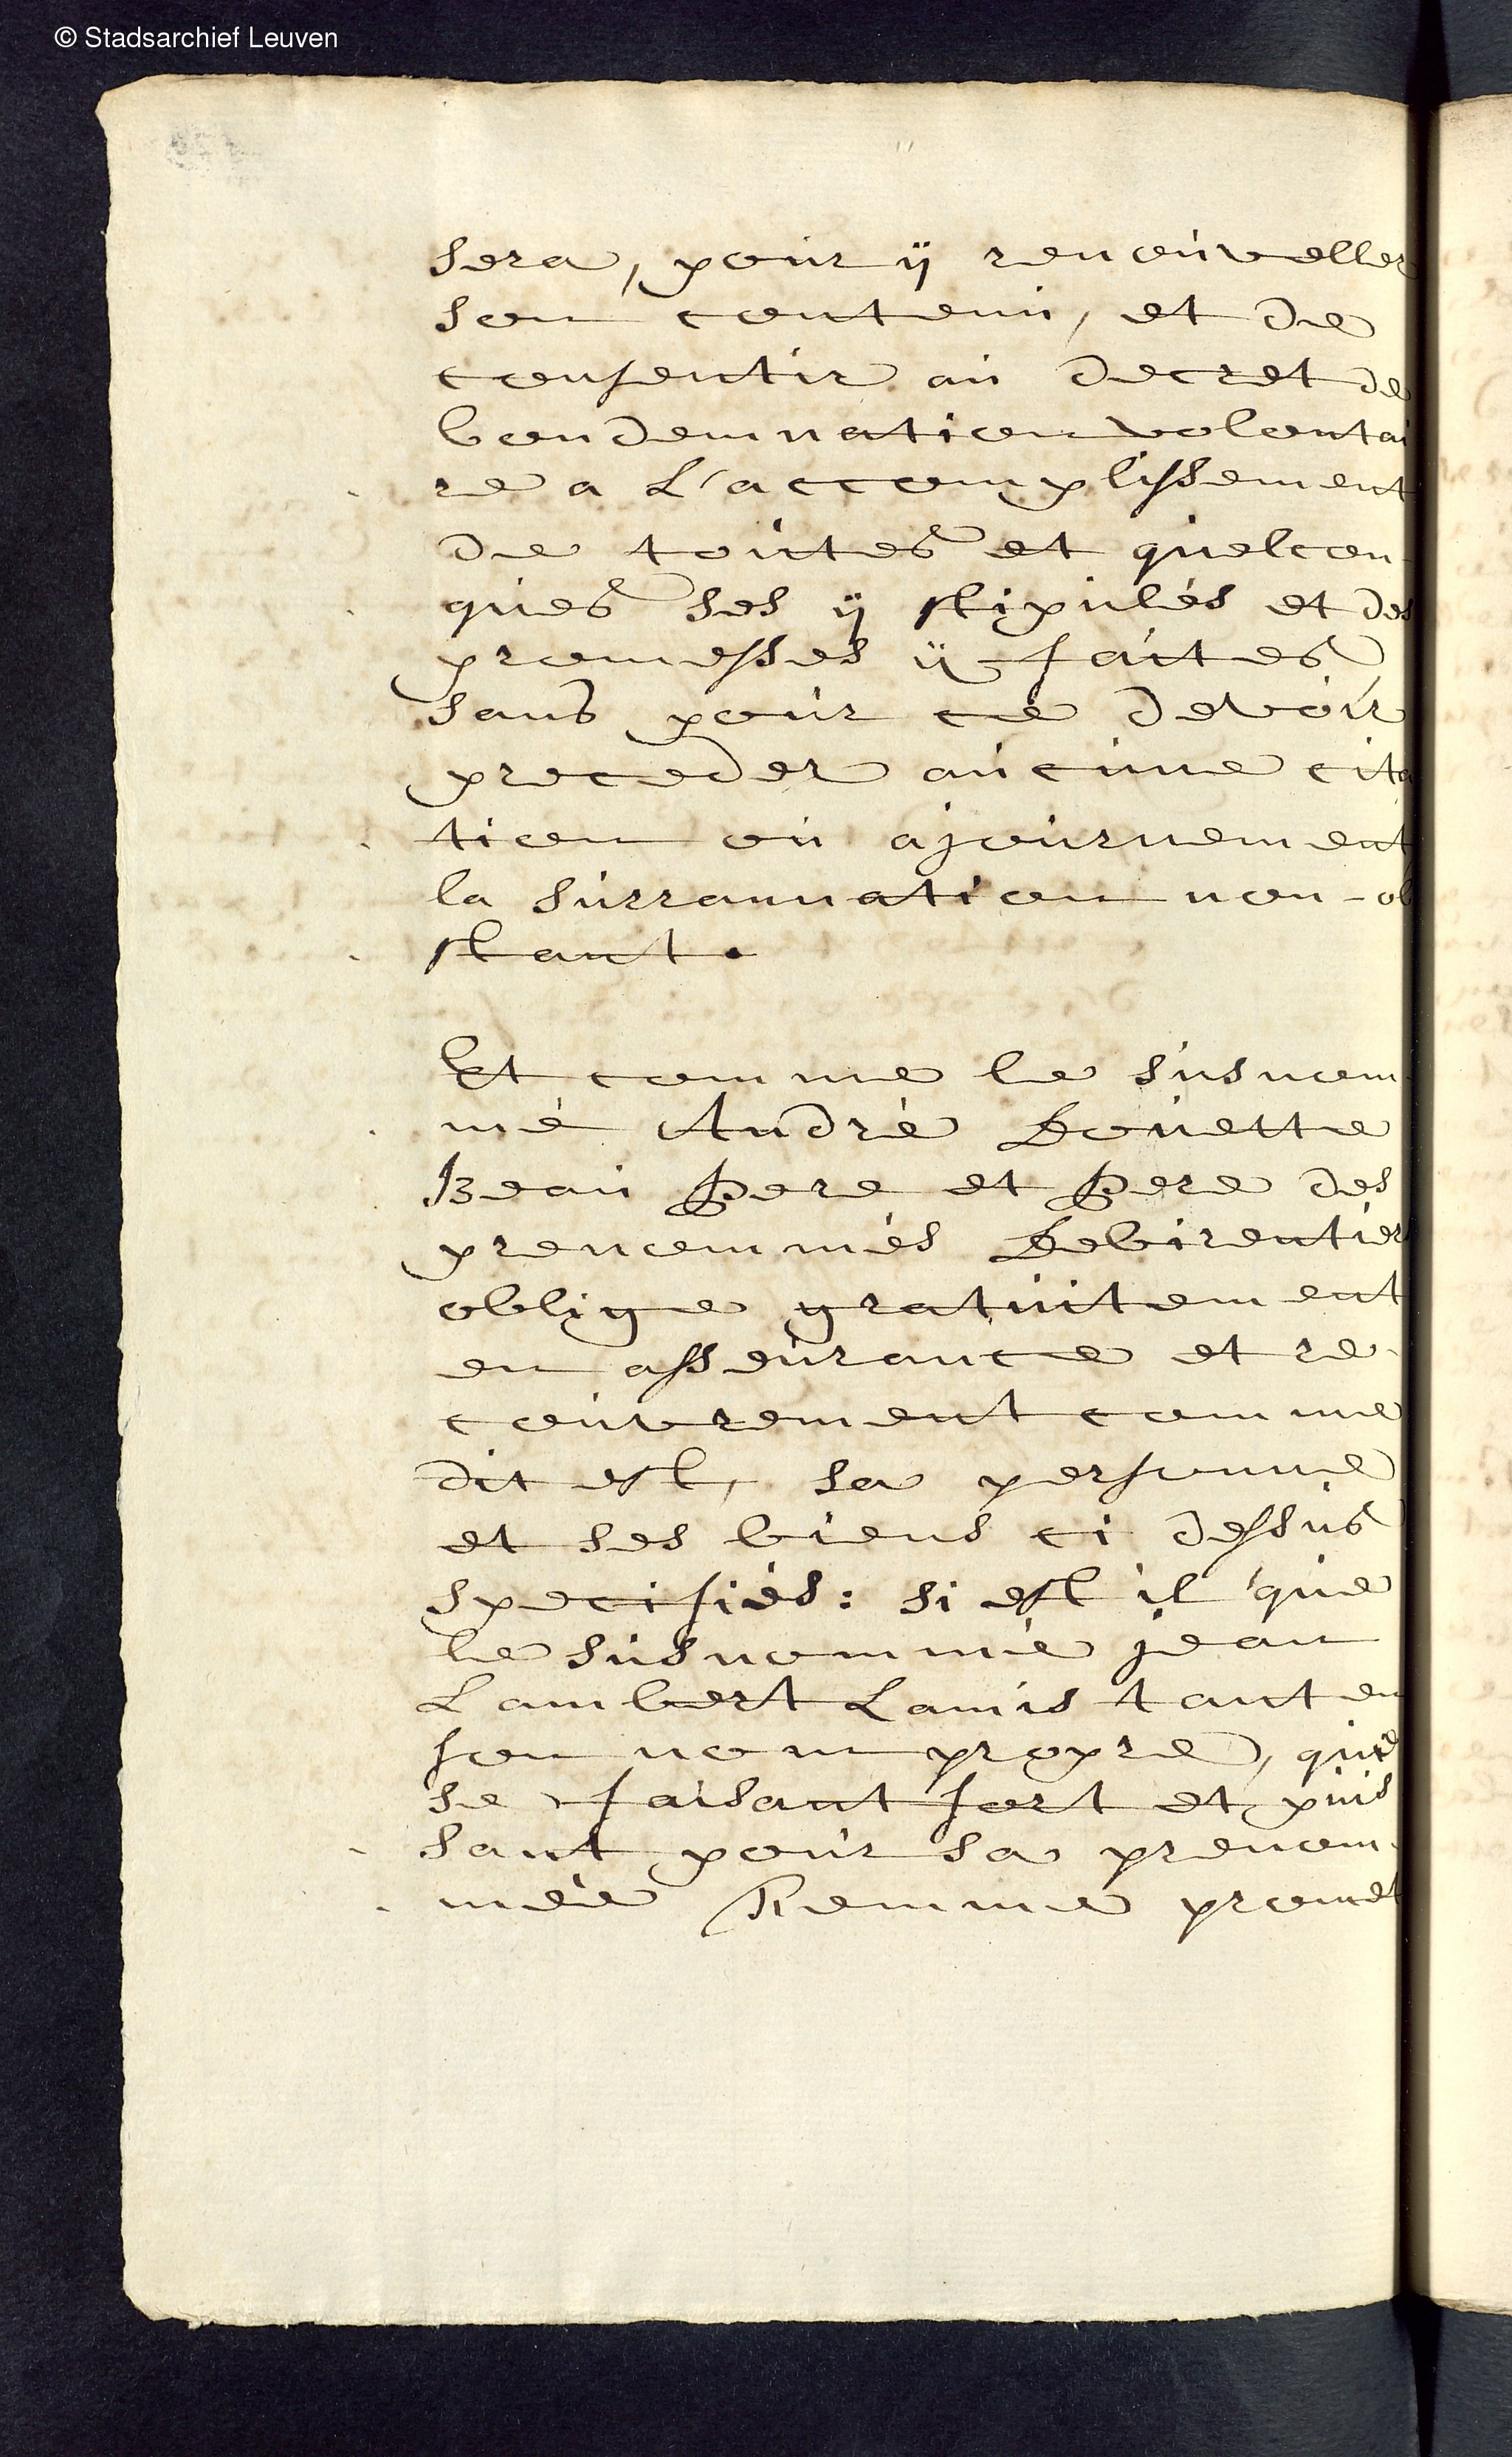 © Stadsarchief Leuven
sera, pour ÿ renouveller
son contenu, et de
consentir au decret de
Condemnation volontai
re a L'accomplissement
de toutes et quelcon
ques ses ÿ stipulés et des
promesses ÿ faittes
sans pour ce devoir
preceder aucune cita
tion ou ajournement
la surrannation non-ob
stant.
Et comme le susnom
mé André Bouette
Beau Pere et Pere des
prenommés Debirentiers
oblige gratuitement
en asseurance et re
couvrement comme
dit est, sa personne
et ses biens ci dessus
specifiés: si est il que
le susnommé jean
Lambert Lamis tant en
son nom propre, que
se faisant fort et puis
sant pour sa prenom
mée Femme promet